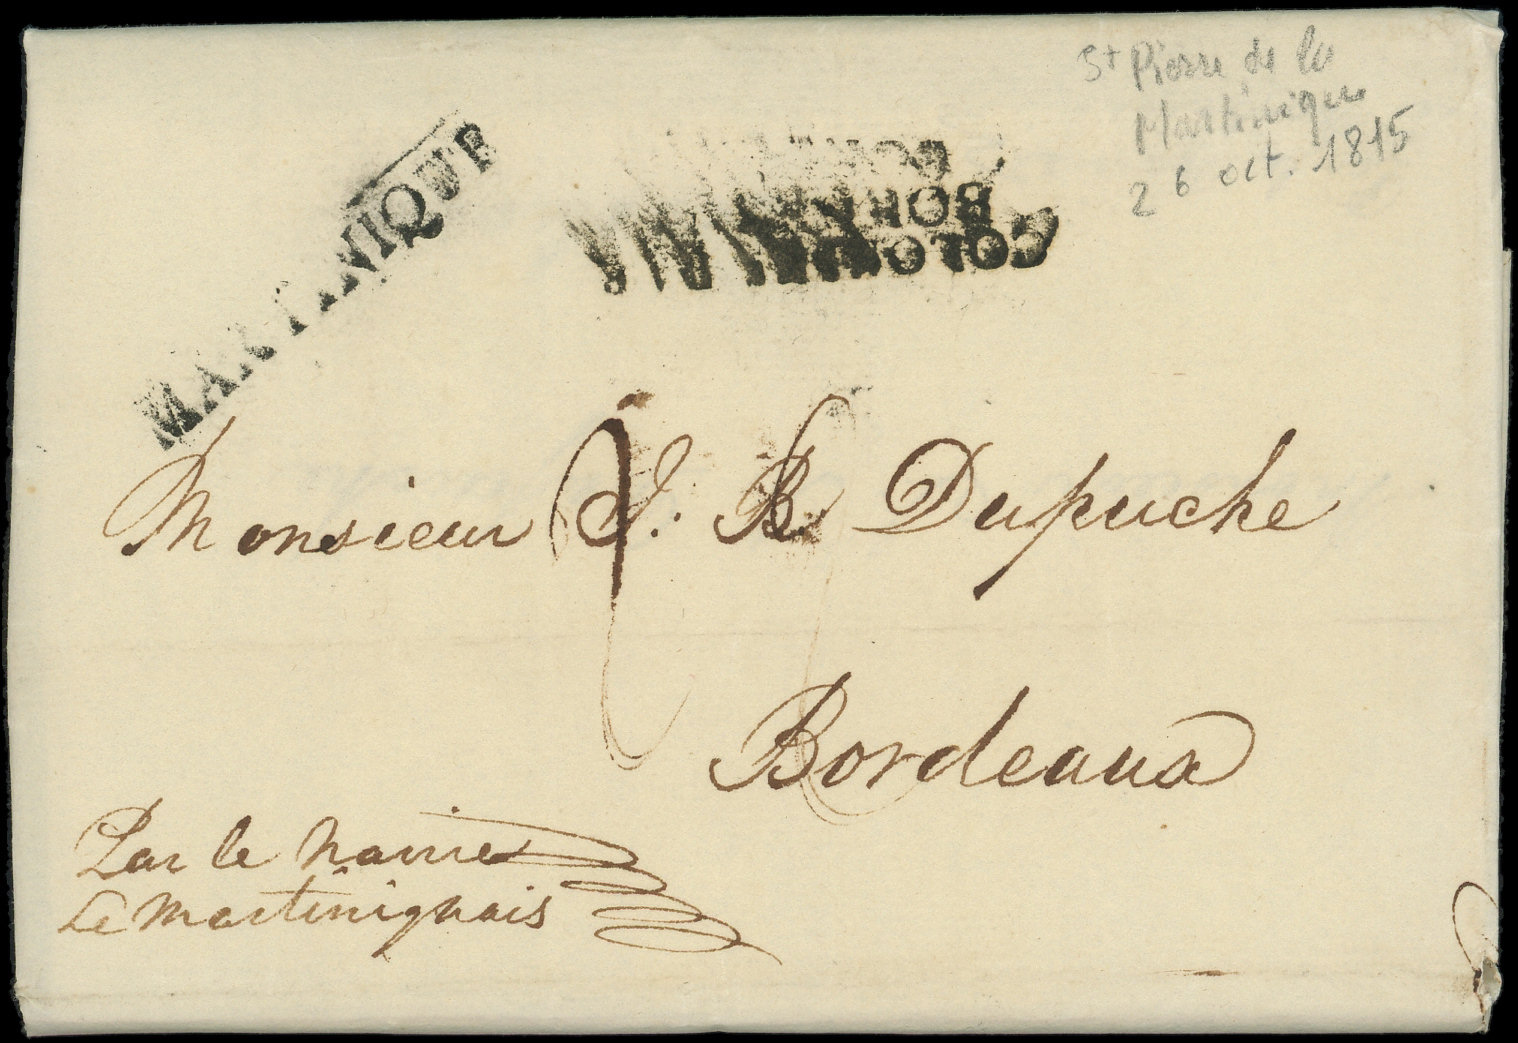 St Pierre de la
Martinique
26 oct. 1815
MARTINIQUE
COLONIES
BOR
Monsieur J. B. Dupuche
Bordeaux
Par le navire
Le Martiniquais